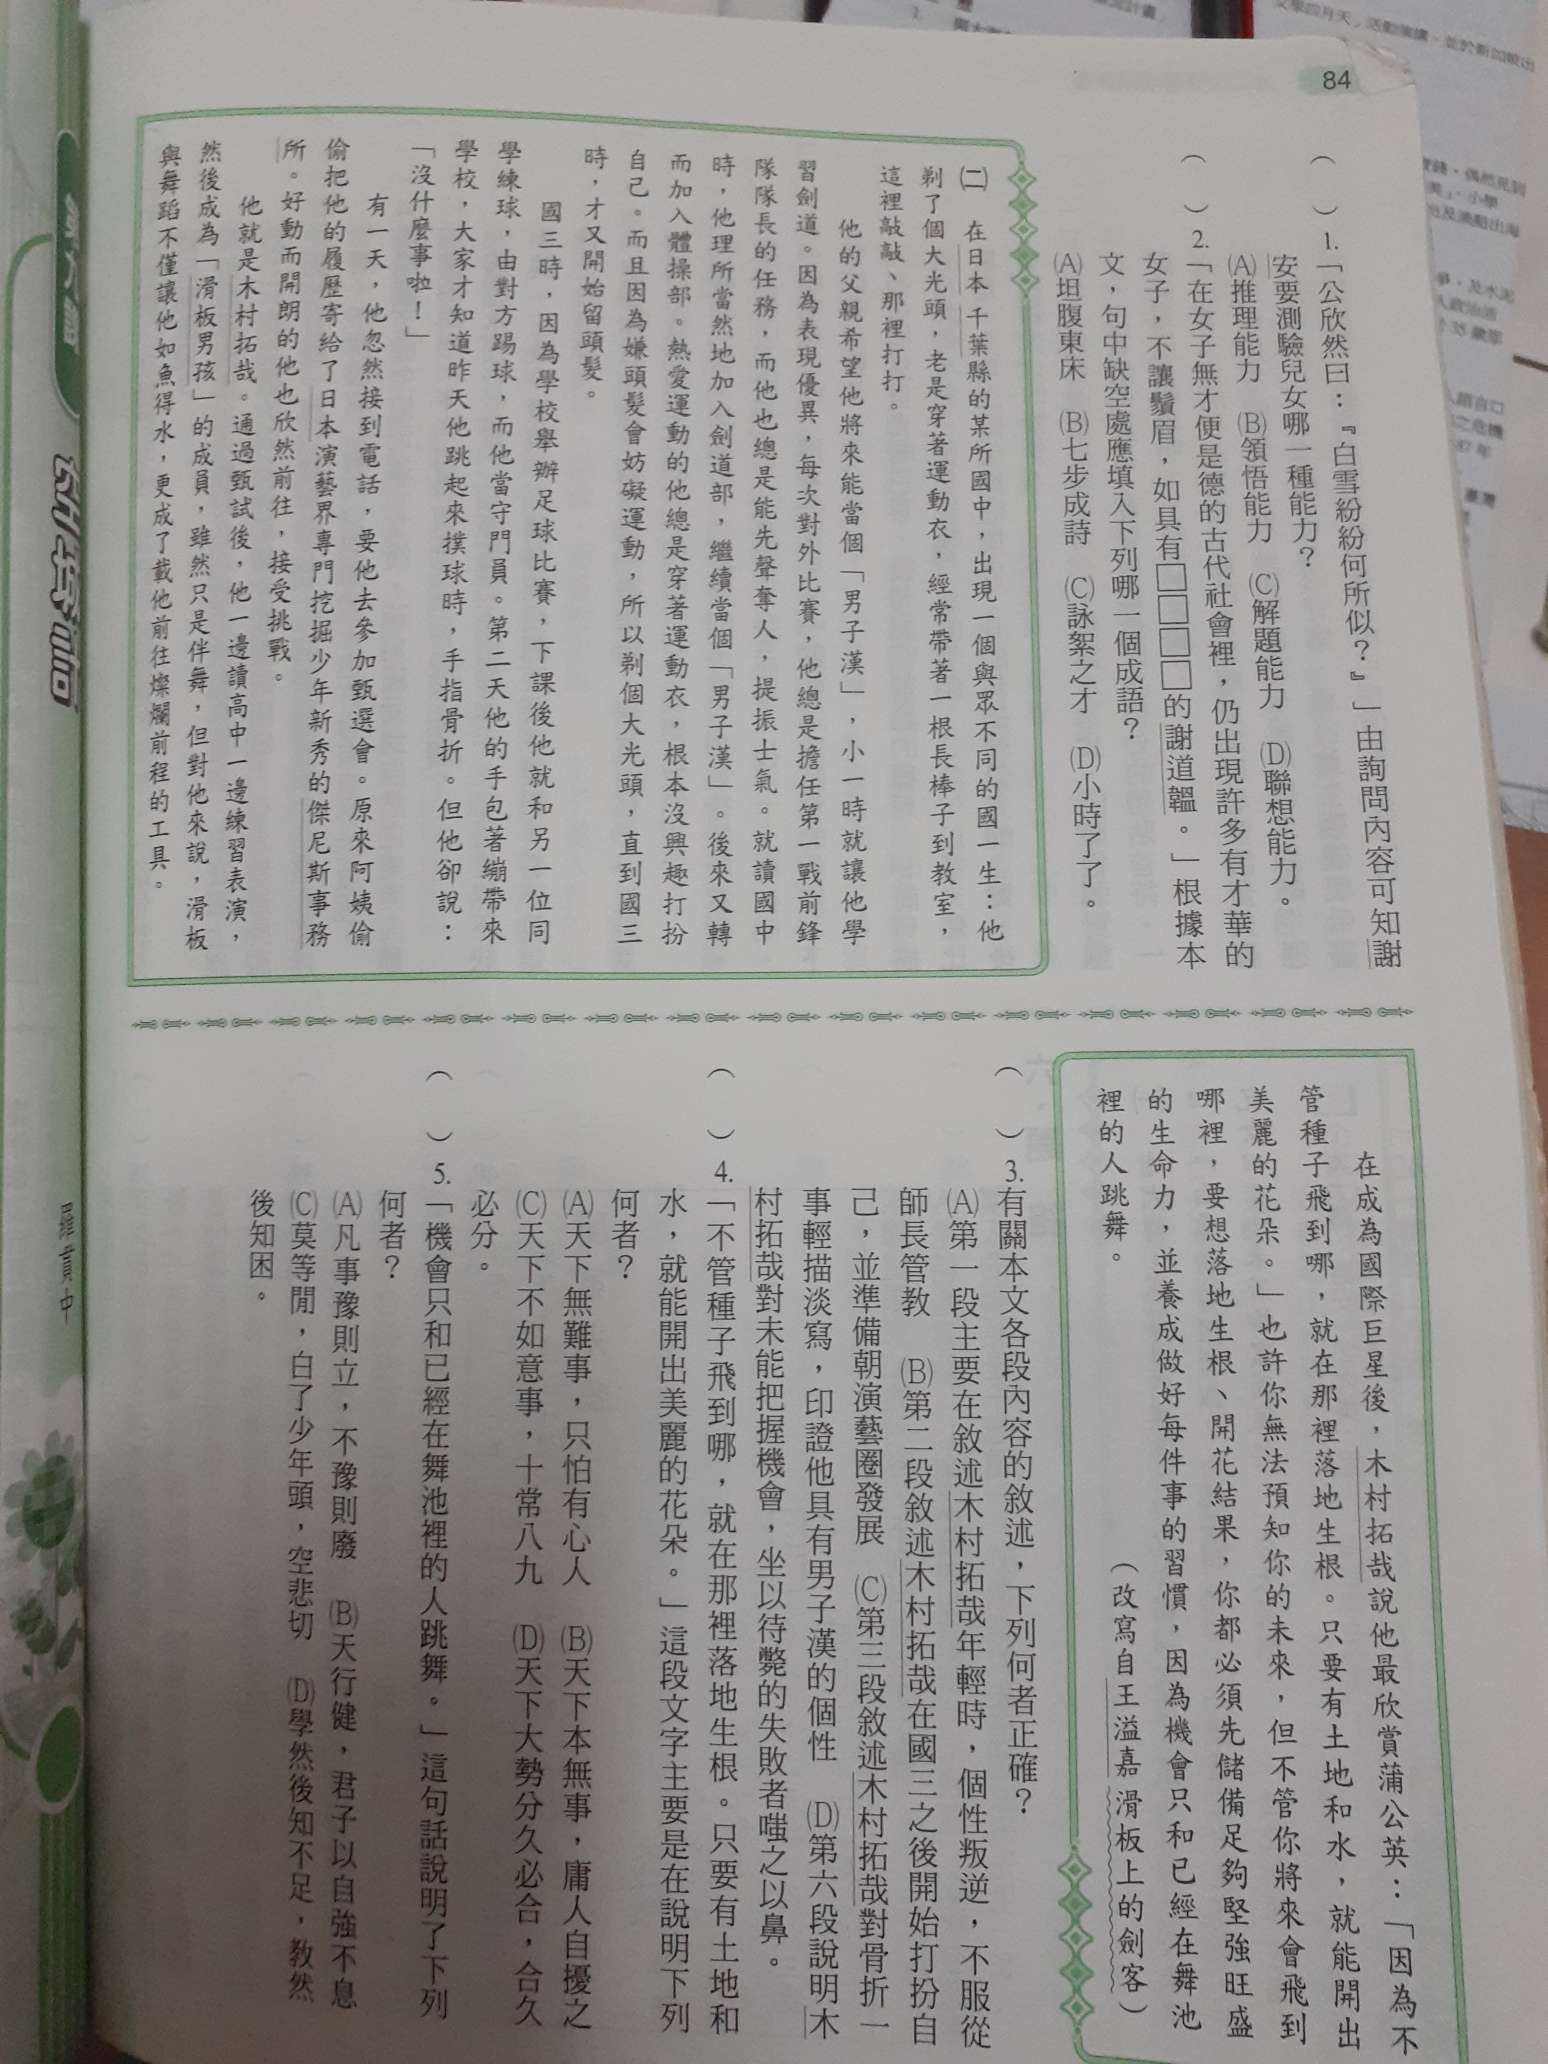 84
( )1.「公欣然曰：『白雪紛紛何所似？』」由詢問內容可知謝
安要測驗兒女哪一種能力？
(A)推理能力　(B)領悟能力　(C)解題能力　(D)聯想能力。
( )2.「在女子無才便是德的古代社會裡，仍出現許多有才華的
女子，不讓鬚眉，如具有□□□□的謝道韞。」根據本
文，句中缺空處應填入下列哪一個成語？
(A)坦腹東床　(B)七步成詩　(C)詠絮之才　(D)小時了了。
(二)　在日本 千葉縣的某所國中，出現一個與眾不同的國一生：他
剃了個大光頭，老是穿著運動衣，經常帶著一根長棒子到教室，
這裡敲敲、那裡打打。
他的父親希望他將來能當個「男子漢」，小一時就讓他學
習劍道。因為表現優異，每次對外比賽，他總是擔任第一戰前鋒
隊隊長的任務，而他也總是能先聲奪人，提振士氣。就讀國中
時，他理所當然地加入劍道部，繼續當個「男子漢」。後來又轉
而加入體操部。熱愛運動的他總是穿著運動衣，根本沒興趣打扮
自己。而且因為嫌頭髮會妨礙運動，所以剃個大光頭，直到國三
時，才又開始留頭髮。
國三時，因為學校舉辦足球比賽，下課後他就和另一位同
學練球，由對方踢球，而他當守門員。第二天他的手包著繃帶來
學校，大家才知道昨天他跳起來撲球時，手指骨折。但他卻說：
「沒什麼事啦！」
有一天，他忽然接到電話，要他去參加甄選會。原來阿姨偷
偷把他的履歷寄給了日本演藝界專門挖掘少年新秀的傑尼斯事務
所。好動而開朗的他也欣然前往，接受挑戰。
他就是木村拓哉。通過甄試後，他一邊讀高中一邊練習表演，
然後成為「滑板男孩」的成員，雖然只是伴舞，但對他來說，滑板
與舞蹈不僅讓他如魚得水，更成了載他前往燦爛前程的工具。
在成為國際巨星後，木村拓哉說他最欣賞蒲公英：「因為不
管種子飛到哪，就在那裡落地生根。只要有土地和水，就能開出
美麗的花朵。」也許你無法預知你的未來，但不管你將來會飛到
哪裡，要想落地生根、開花結果，你都必須先儲備足夠堅強旺盛
的生命力，並養成做好每件事的習慣，因為機會只和已經在舞池
裡的人跳舞。　（改寫自王溢嘉 滑板上的劍客）
( )3.有關本文各段內容的敘述，下列何者正確？
(A)第一段主要在敘述木村拓哉年輕時，個性叛逆，不服從
師長管教　(B)第二段敘述木村拓哉在國三之後開始打扮自
己，並準備朝演藝圈發展　(C)第三段敘述木村拓哉對骨折一
事輕描淡寫，印證他具有男子漢的個性　(D)第六段說明木
村拓哉對未能把握機會，坐以待斃的失敗者嗤之以鼻。
( )4.「不管種子飛到哪，就在那裡落地生根。只要有土地和
水，就能開出美麗的花朵。」這段文字主要是在說明下列
何者？
(A)天下無難事，只怕有心人　(B)天下本無事，庸人自擾之
(C)天下不如意事，十常八九　(D)天下大勢分久必合，合久
必分。
( )5.「機會只和已經在舞池裡的人跳舞。」這句話說明了下列
何者？
(A)凡事豫則立，不豫則廢　(B)天行健，君子以自強不息
(C)莫等閒，白了少年頭，空悲切　(D)學然後知不足，教然
後知困。
羅貫中